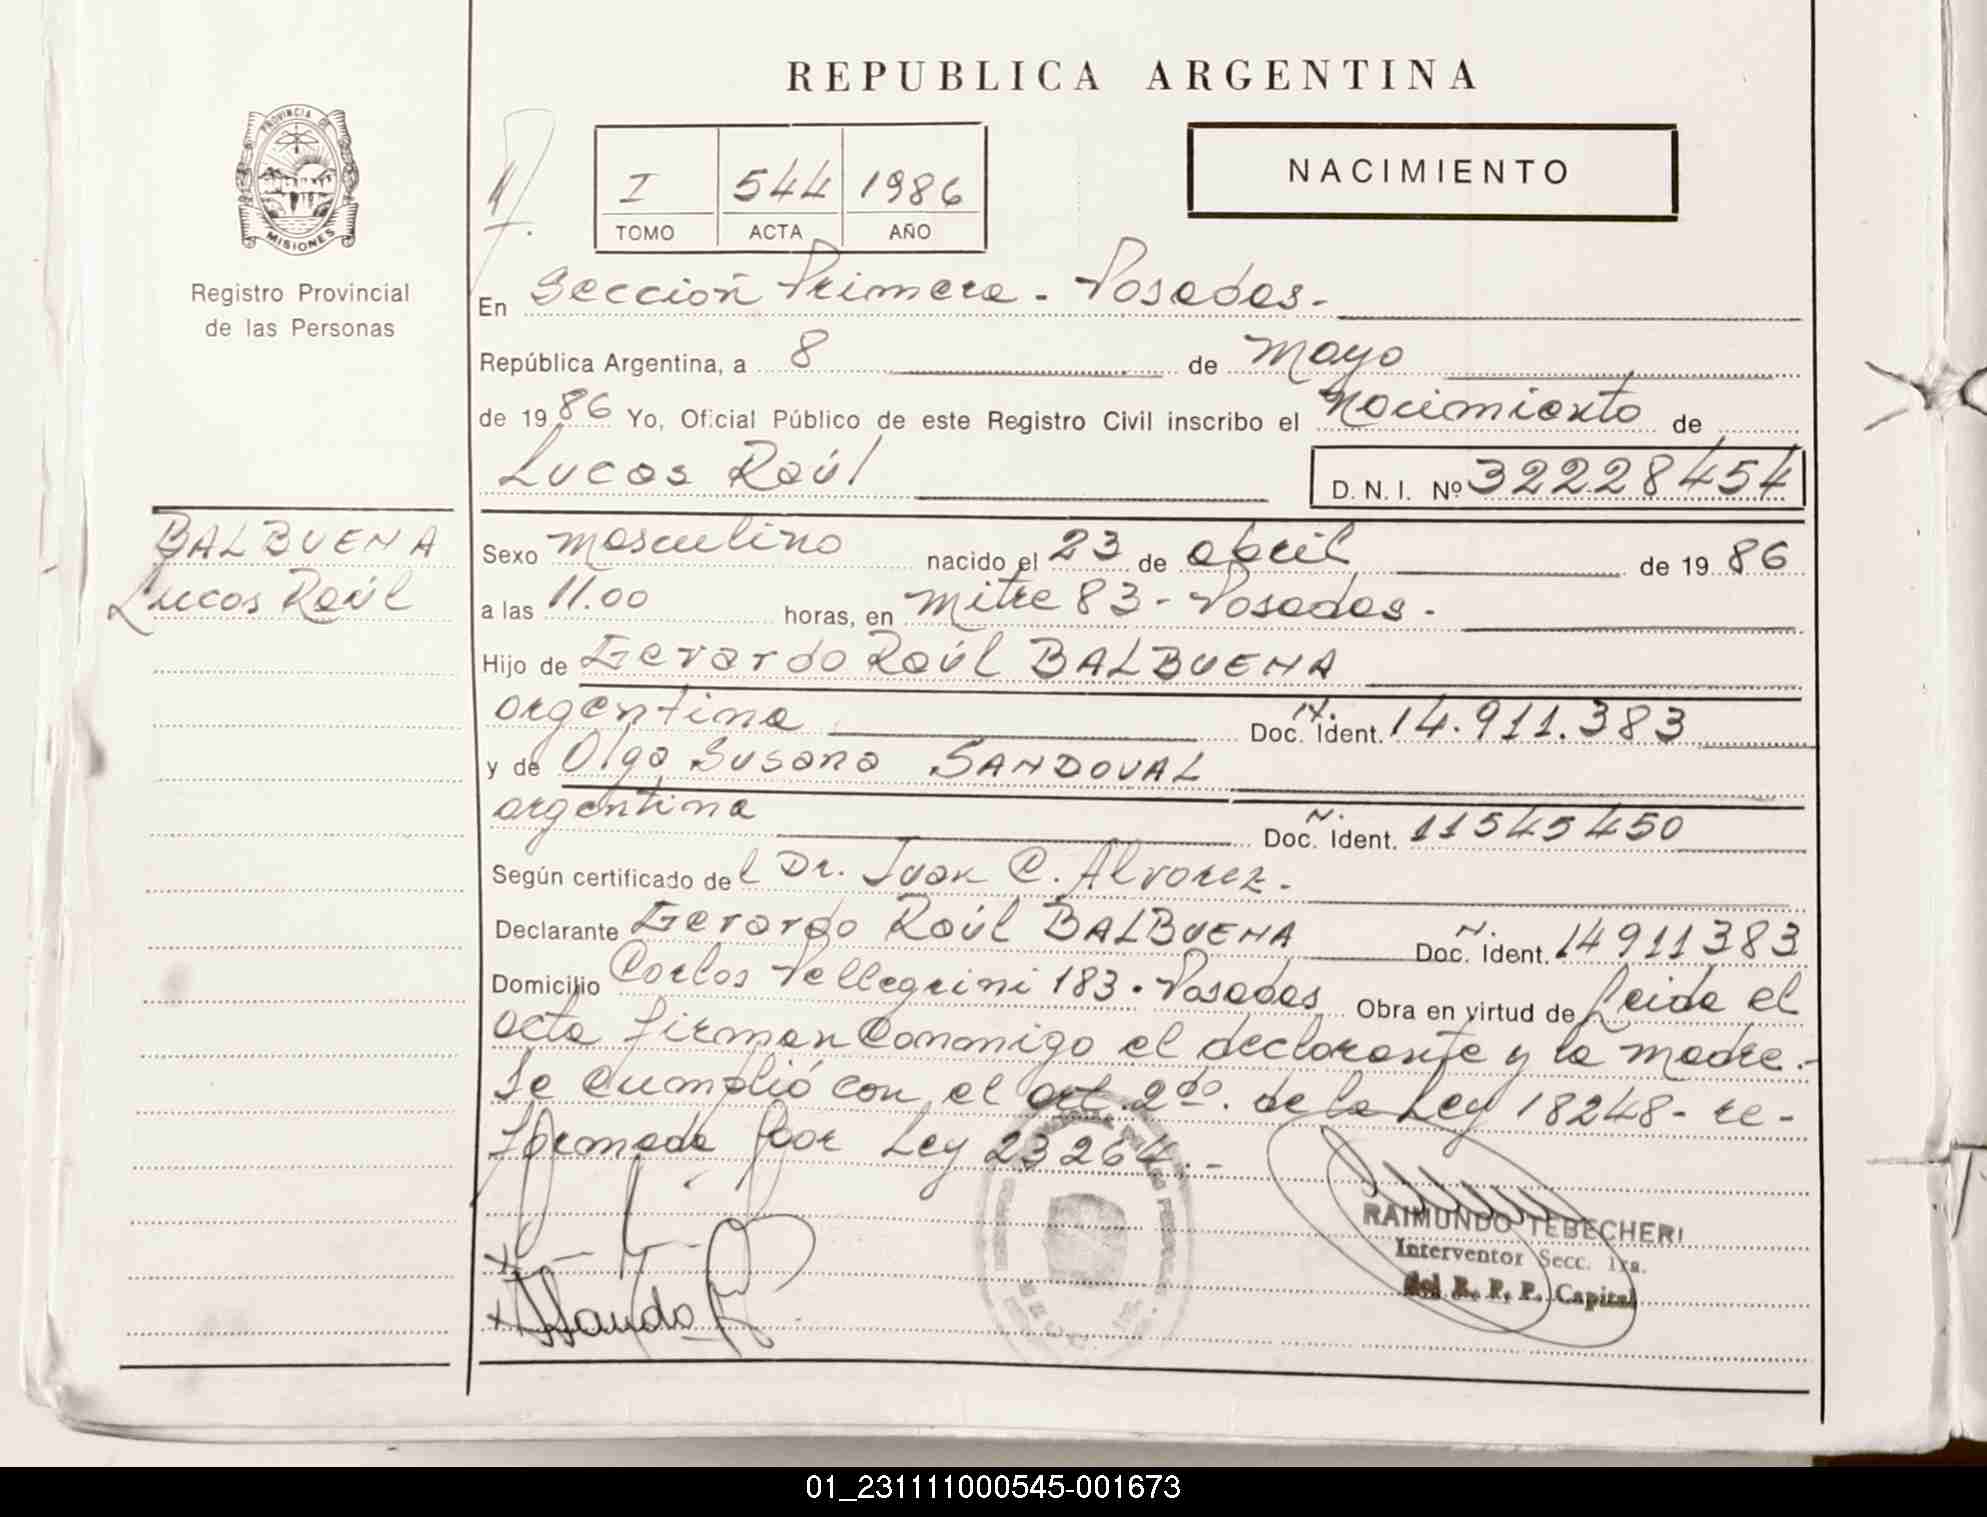 REPUBLICA ARGENTINA
PROVINCIA DE
MISIONES
Registro Provincial
de las Personas
I 544 1986
TOMO ACTA AÑO
NACIMIENTO
En Sección Primera - Posadas.
República Argentina, a 8 de mayo
de 1986 Yo, Oficial Público de este Registro Civil inscribo el nacimiento de
Lucas Raúl D. N. I. Nº 32228454
BALBUENA
Lucas Raúl
Sexo masculino nacido el 23 de abril de 1986
a las 11.00 horas, en Mitre 83 - Posadas.
Hijo de Gerardo Raúl BALBUENA
argentina Doc. Ident. N. 14.911.383
y de Olga Susana SANDOVAL
argentina Doc. Ident. N. 11545450
Según certificado del Dr. Juan C. Alvarez.
Declarante Gerardo Raúl BALBUENA Doc. Ident. N. 14911383
Domicilio Carlos Pellegrini 183. Posadas Obra en virtud de Leida el
acta firman conmigo el declarante y la madre.-
Se cumplió con el art. 2do. de la Ley 18248- re-
formada por Ley 23264.-
RAIMUNDO TEBECHERI
Interventor Secc. 1ra.
del R. P. P. Capital
01_231111000545-001673